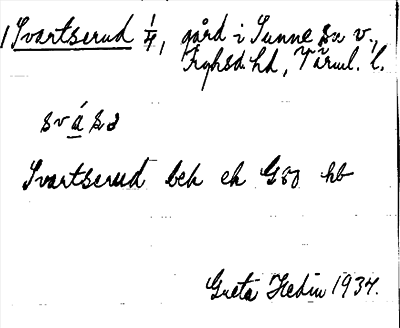 1 Svartserud 1/4, gård i Sunne sn v.,
Fryksd. hd, Värml. l.
svásə
Svartserud bek ek G80 hb
Greta Hedin 1934.